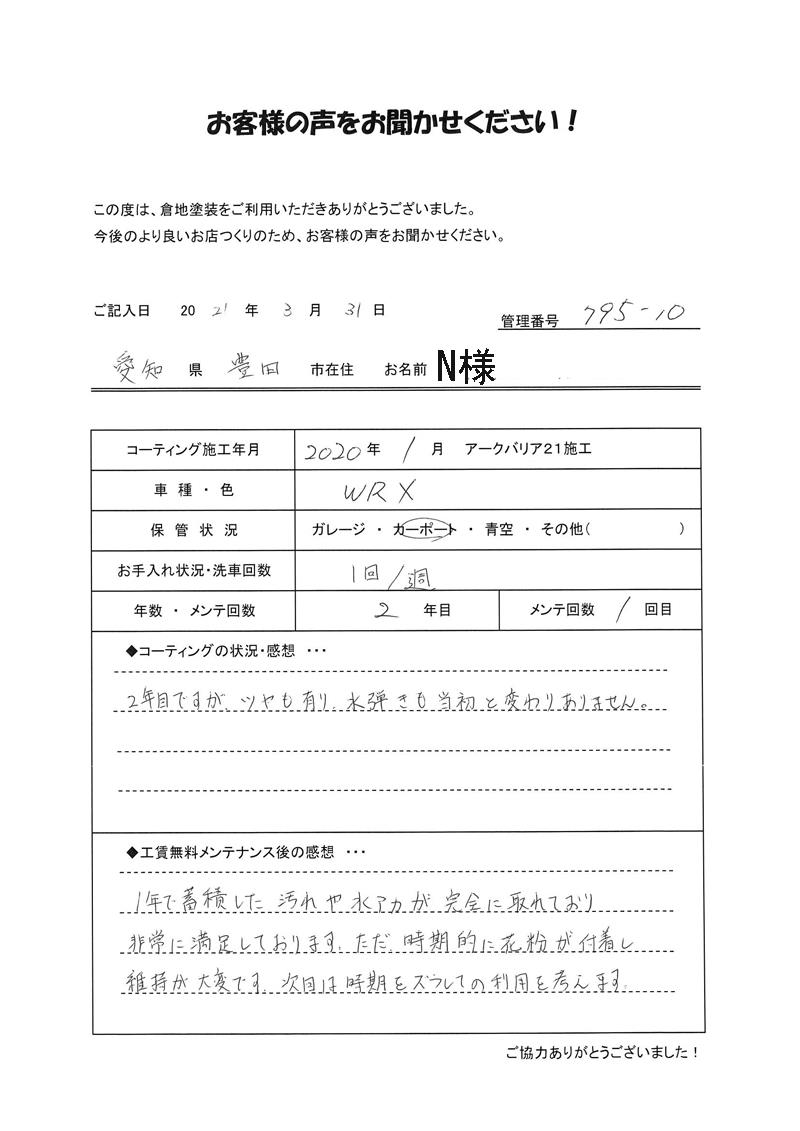 お客様の声をお聞かせください!
この度は、倉地塗装をご利用いただきありがとうございました。
今後のより良いお店つくりのため、お客様の声をお聞かせください。
ご記入日 20 21 年 3 月 31 日
管理番号 795-10
愛知 県 豊田 市在住 お名前 N様
コーティング施工年月 2020 年 1 月 アークバリア21施工
車 種 ・ 色 WRX
保 管 状 況 ガレージ ・ カーポート ・ 青空 ・ その他( )
お手入れ状況・洗車回数 1回/週
年数 ・ メンテ回数 2 年目 メンテ回数 1 回目
◆コーティングの状況・感想 ・・・
2年目ですが、ツヤも有り、水弾きも当初と変わりありません。
◆工賃無料メンテナンス後の感想 ・・・
1年で蓄積した汚れや水アカが完全に取れており
非常に満足しております。ただ、時期的に花粉が付着し
維持が大変です。次回は時期をズラしての利用を考えます。
ご協力ありがとうございました!